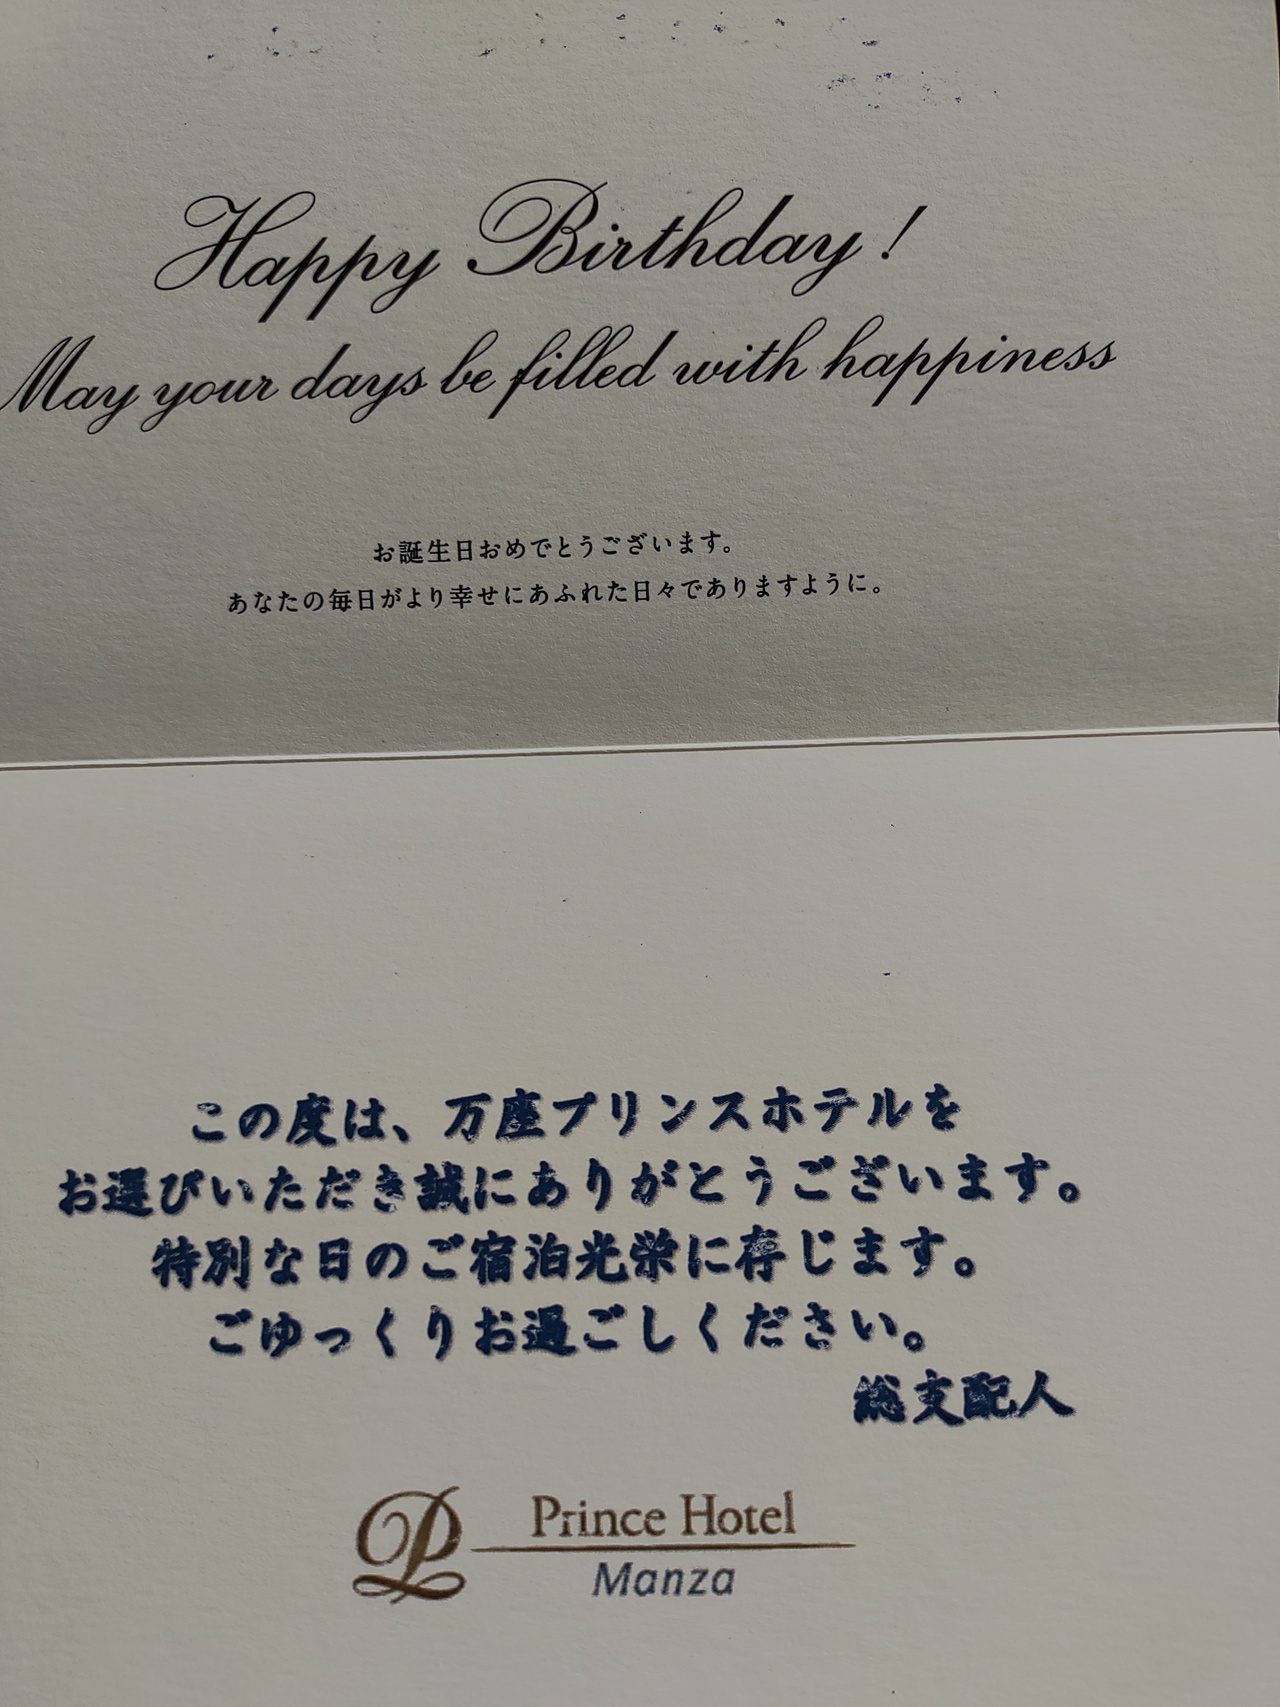 Happy Birthday !
May your days be filled with happiness
お誕生日おめでとうございます。
あなたの毎日がより幸せにあふれた日々でありますように。
この度は、万座プリンスホテルを
お選びいただき誠にありがとうございます。
特別な日のご宿泊光栄に存じます。
ごゆっくりお過ごしください。
総支配人
Prince Hotel
Manza